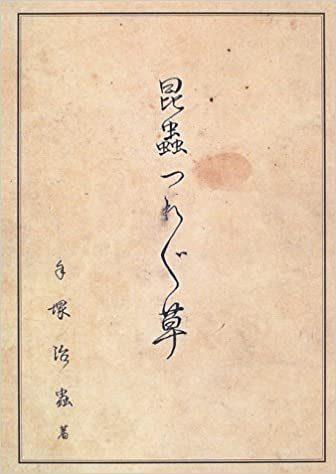 昆蟲つれ〲草
手塚治蟲著